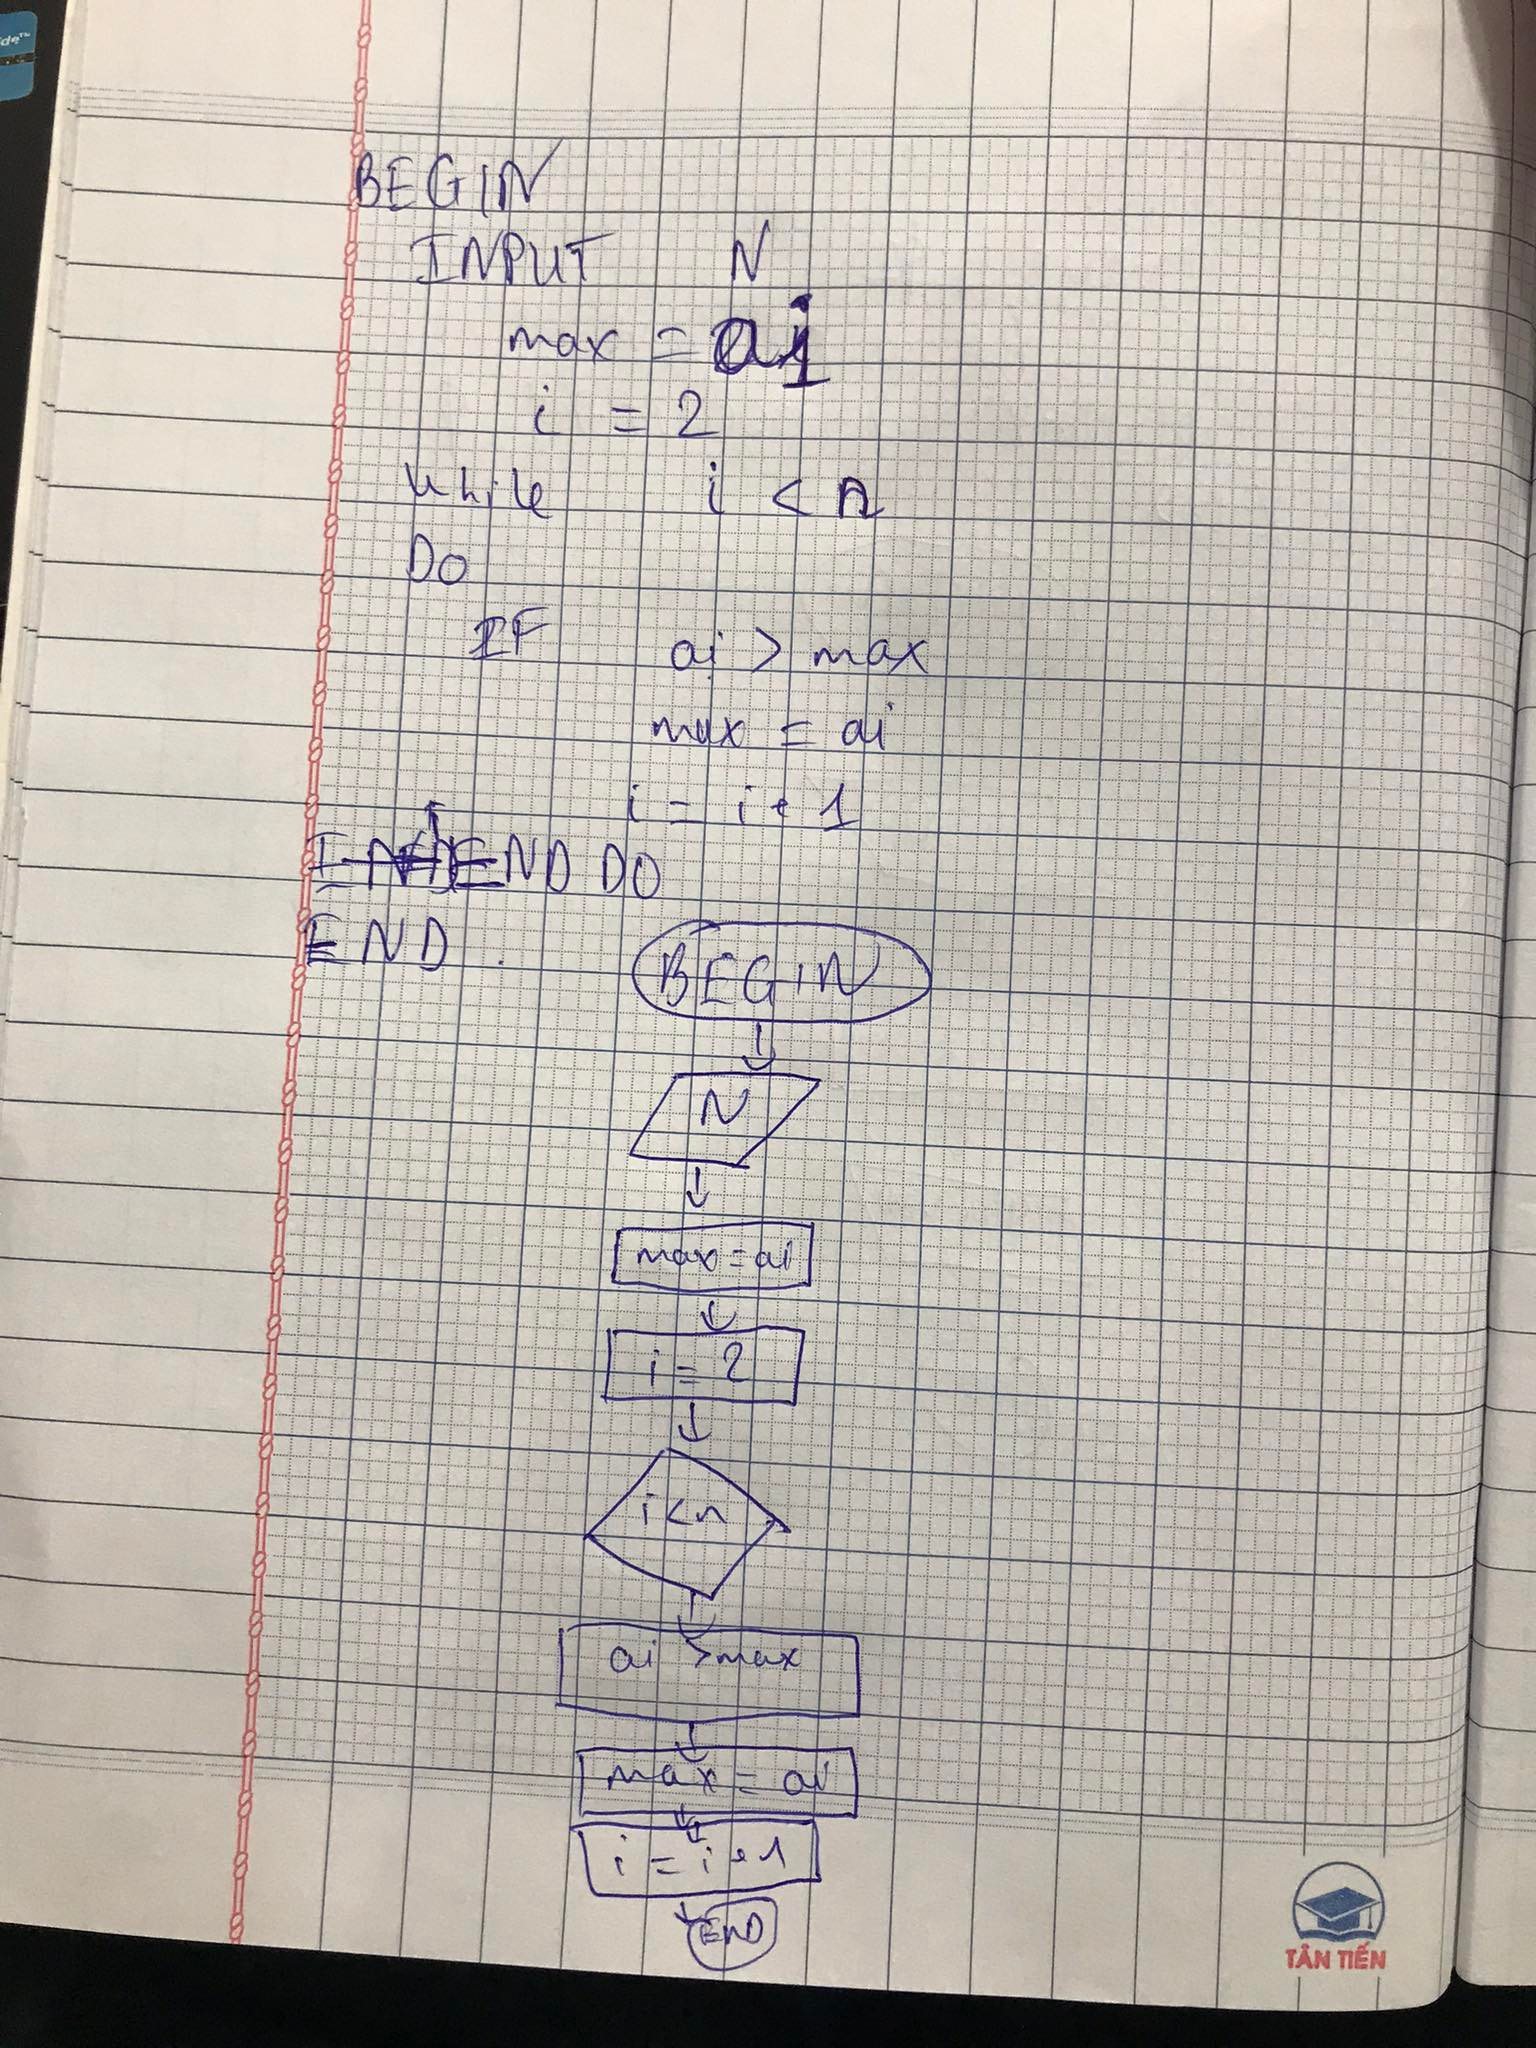 BEGIN
INPUT N
max = ai
i = 2
while i < n
DO
IF ai > max
max = ai
i = i + 1
END DO
END.
BEGIN
N
max = ai
i = 2
i < n
ai > max
max = ai
i = i + 1
END
TÂN TIẾN